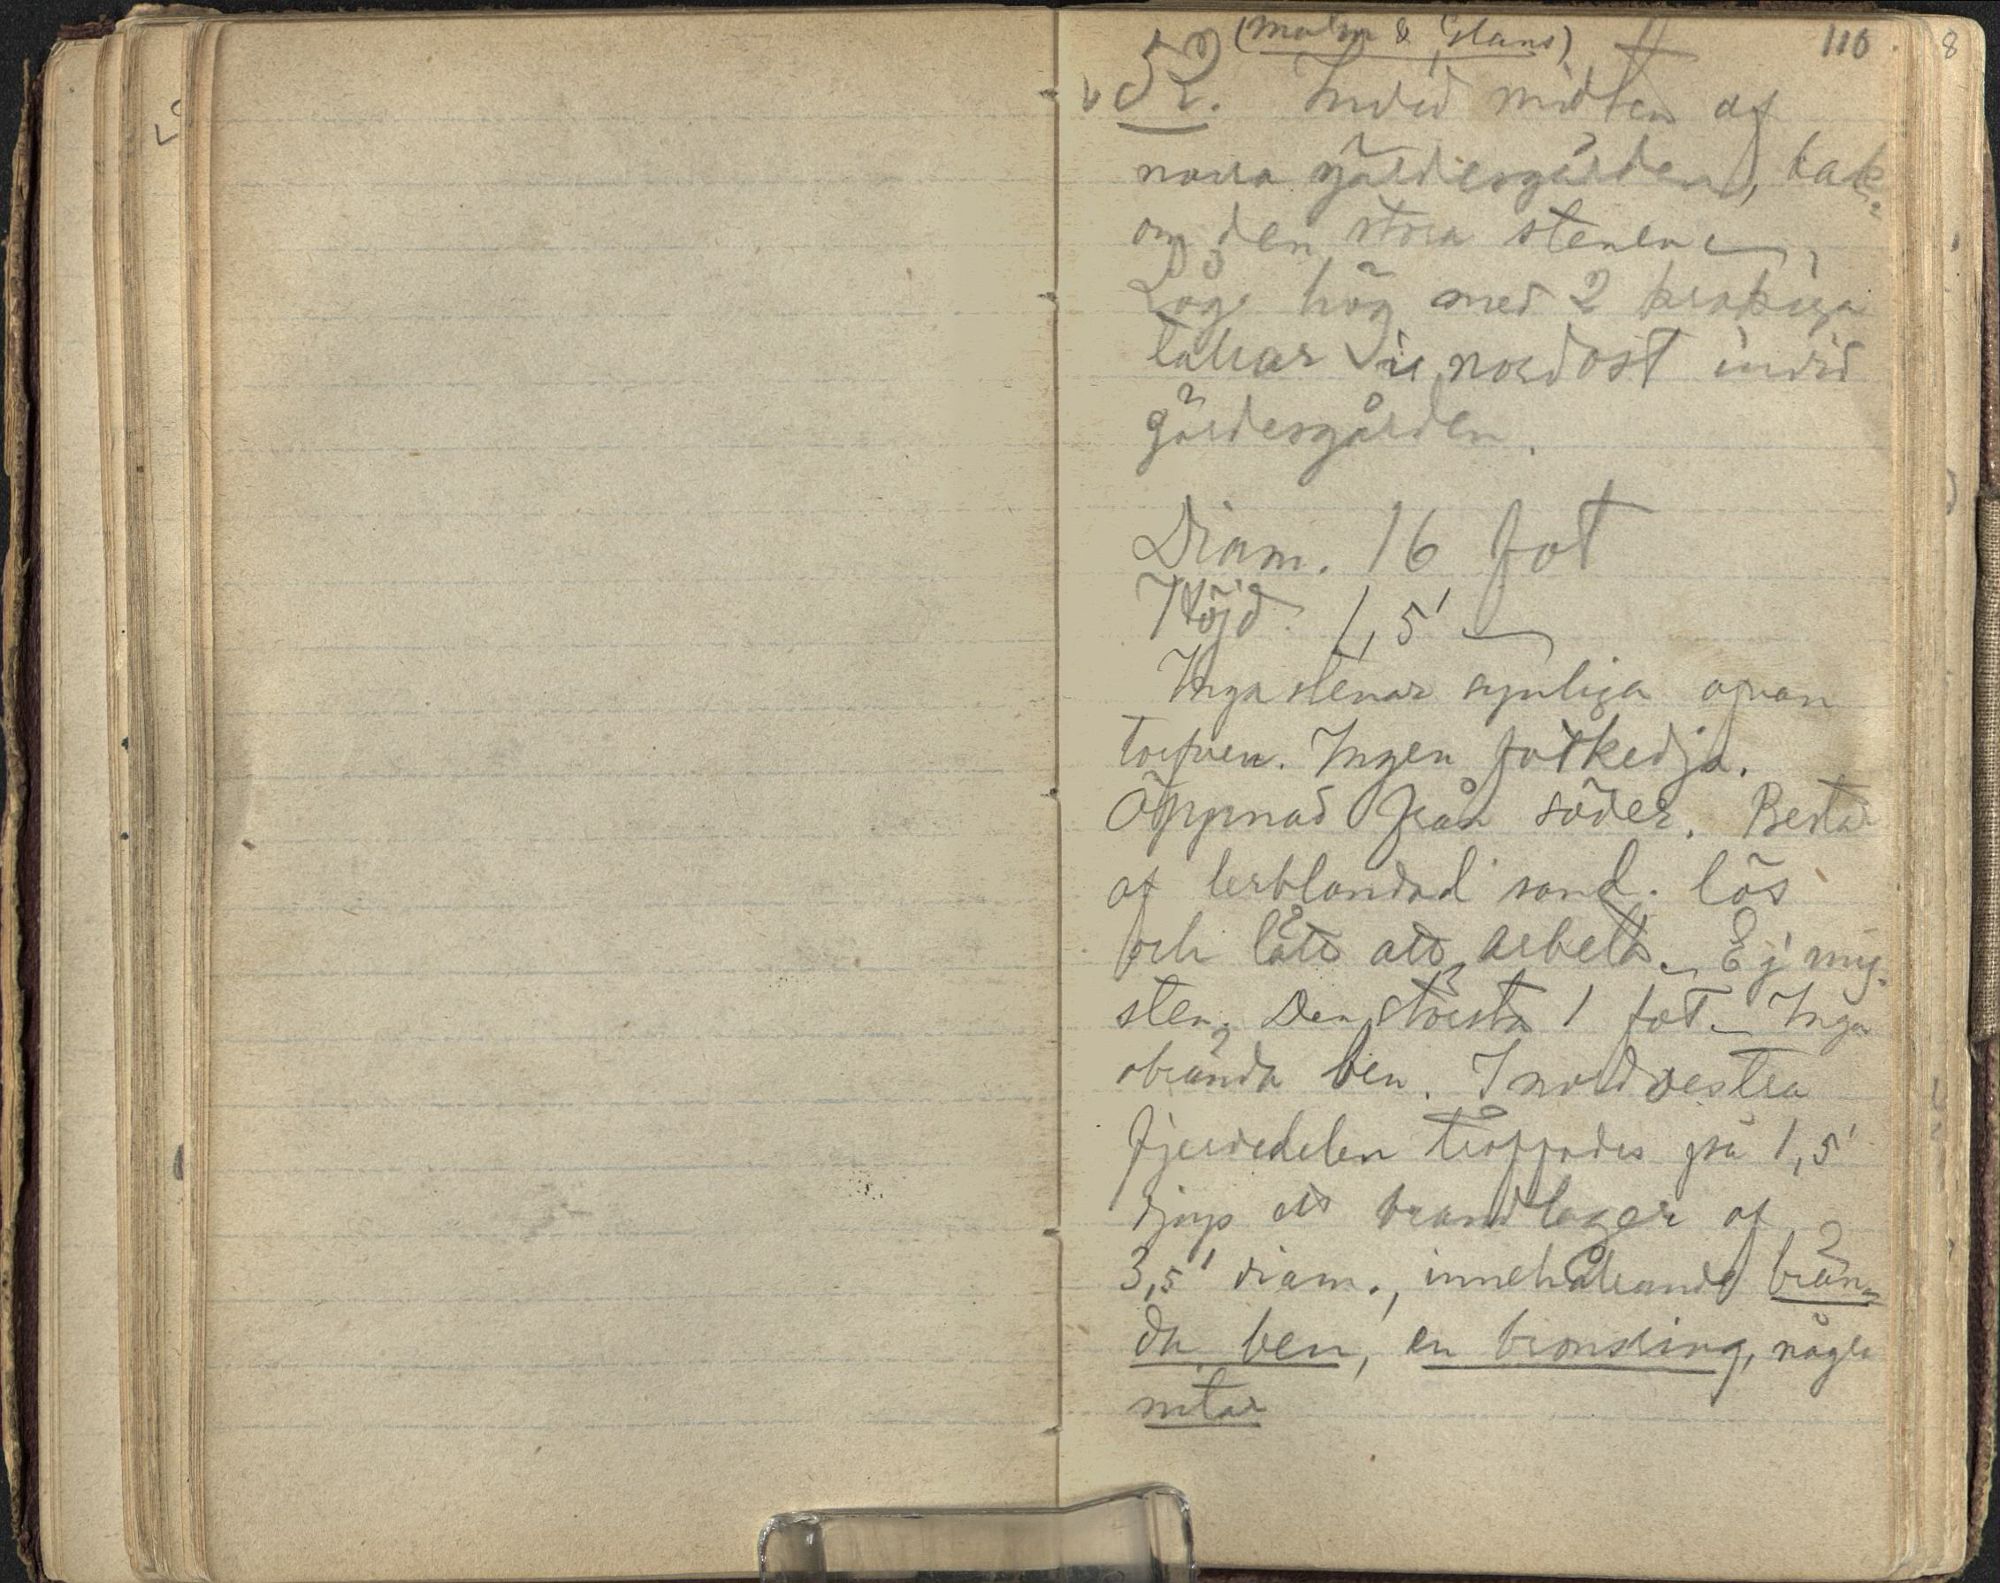 (Malm & Glans) 110
52. Invid midten af
norra gärdesgården, bak-
om den stora stenen
Låg hög med 2 krokiga
tallar i nordost invid
gärdesgården.
Diam. 16 fot
Höjd. 1,5'
Inga stenar synliga ofvan
torfven. Ingen fotkedja.
Öppnad från söder. Består
af lerblandad sand. lös
och lätt att arbeta. Ej myc.
sten. Den största 1 fot. Inga
obrända ben. I nordvestra
fjerdedelen träffades på 1,5'
djup ett brandlager af
3,5' diam., innehållande brän-
da ben, en bronsring, några
nitar
8